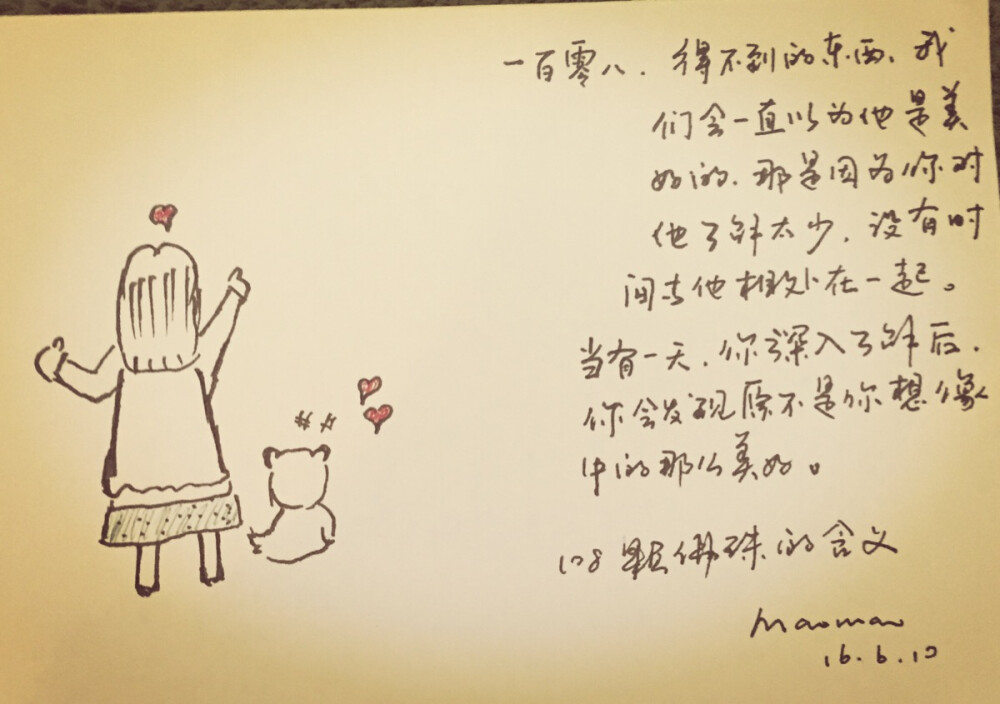 一百零八、得不到的东西、我
们会一直以为他是美
好的、那是因为你对
他了解太少，没有时
间与他相处在一起。
当有一天，你深入了解后，
你会发现原不是你想像
中的那么美好。
108颗佛珠的含义
Maomao
16.6.10